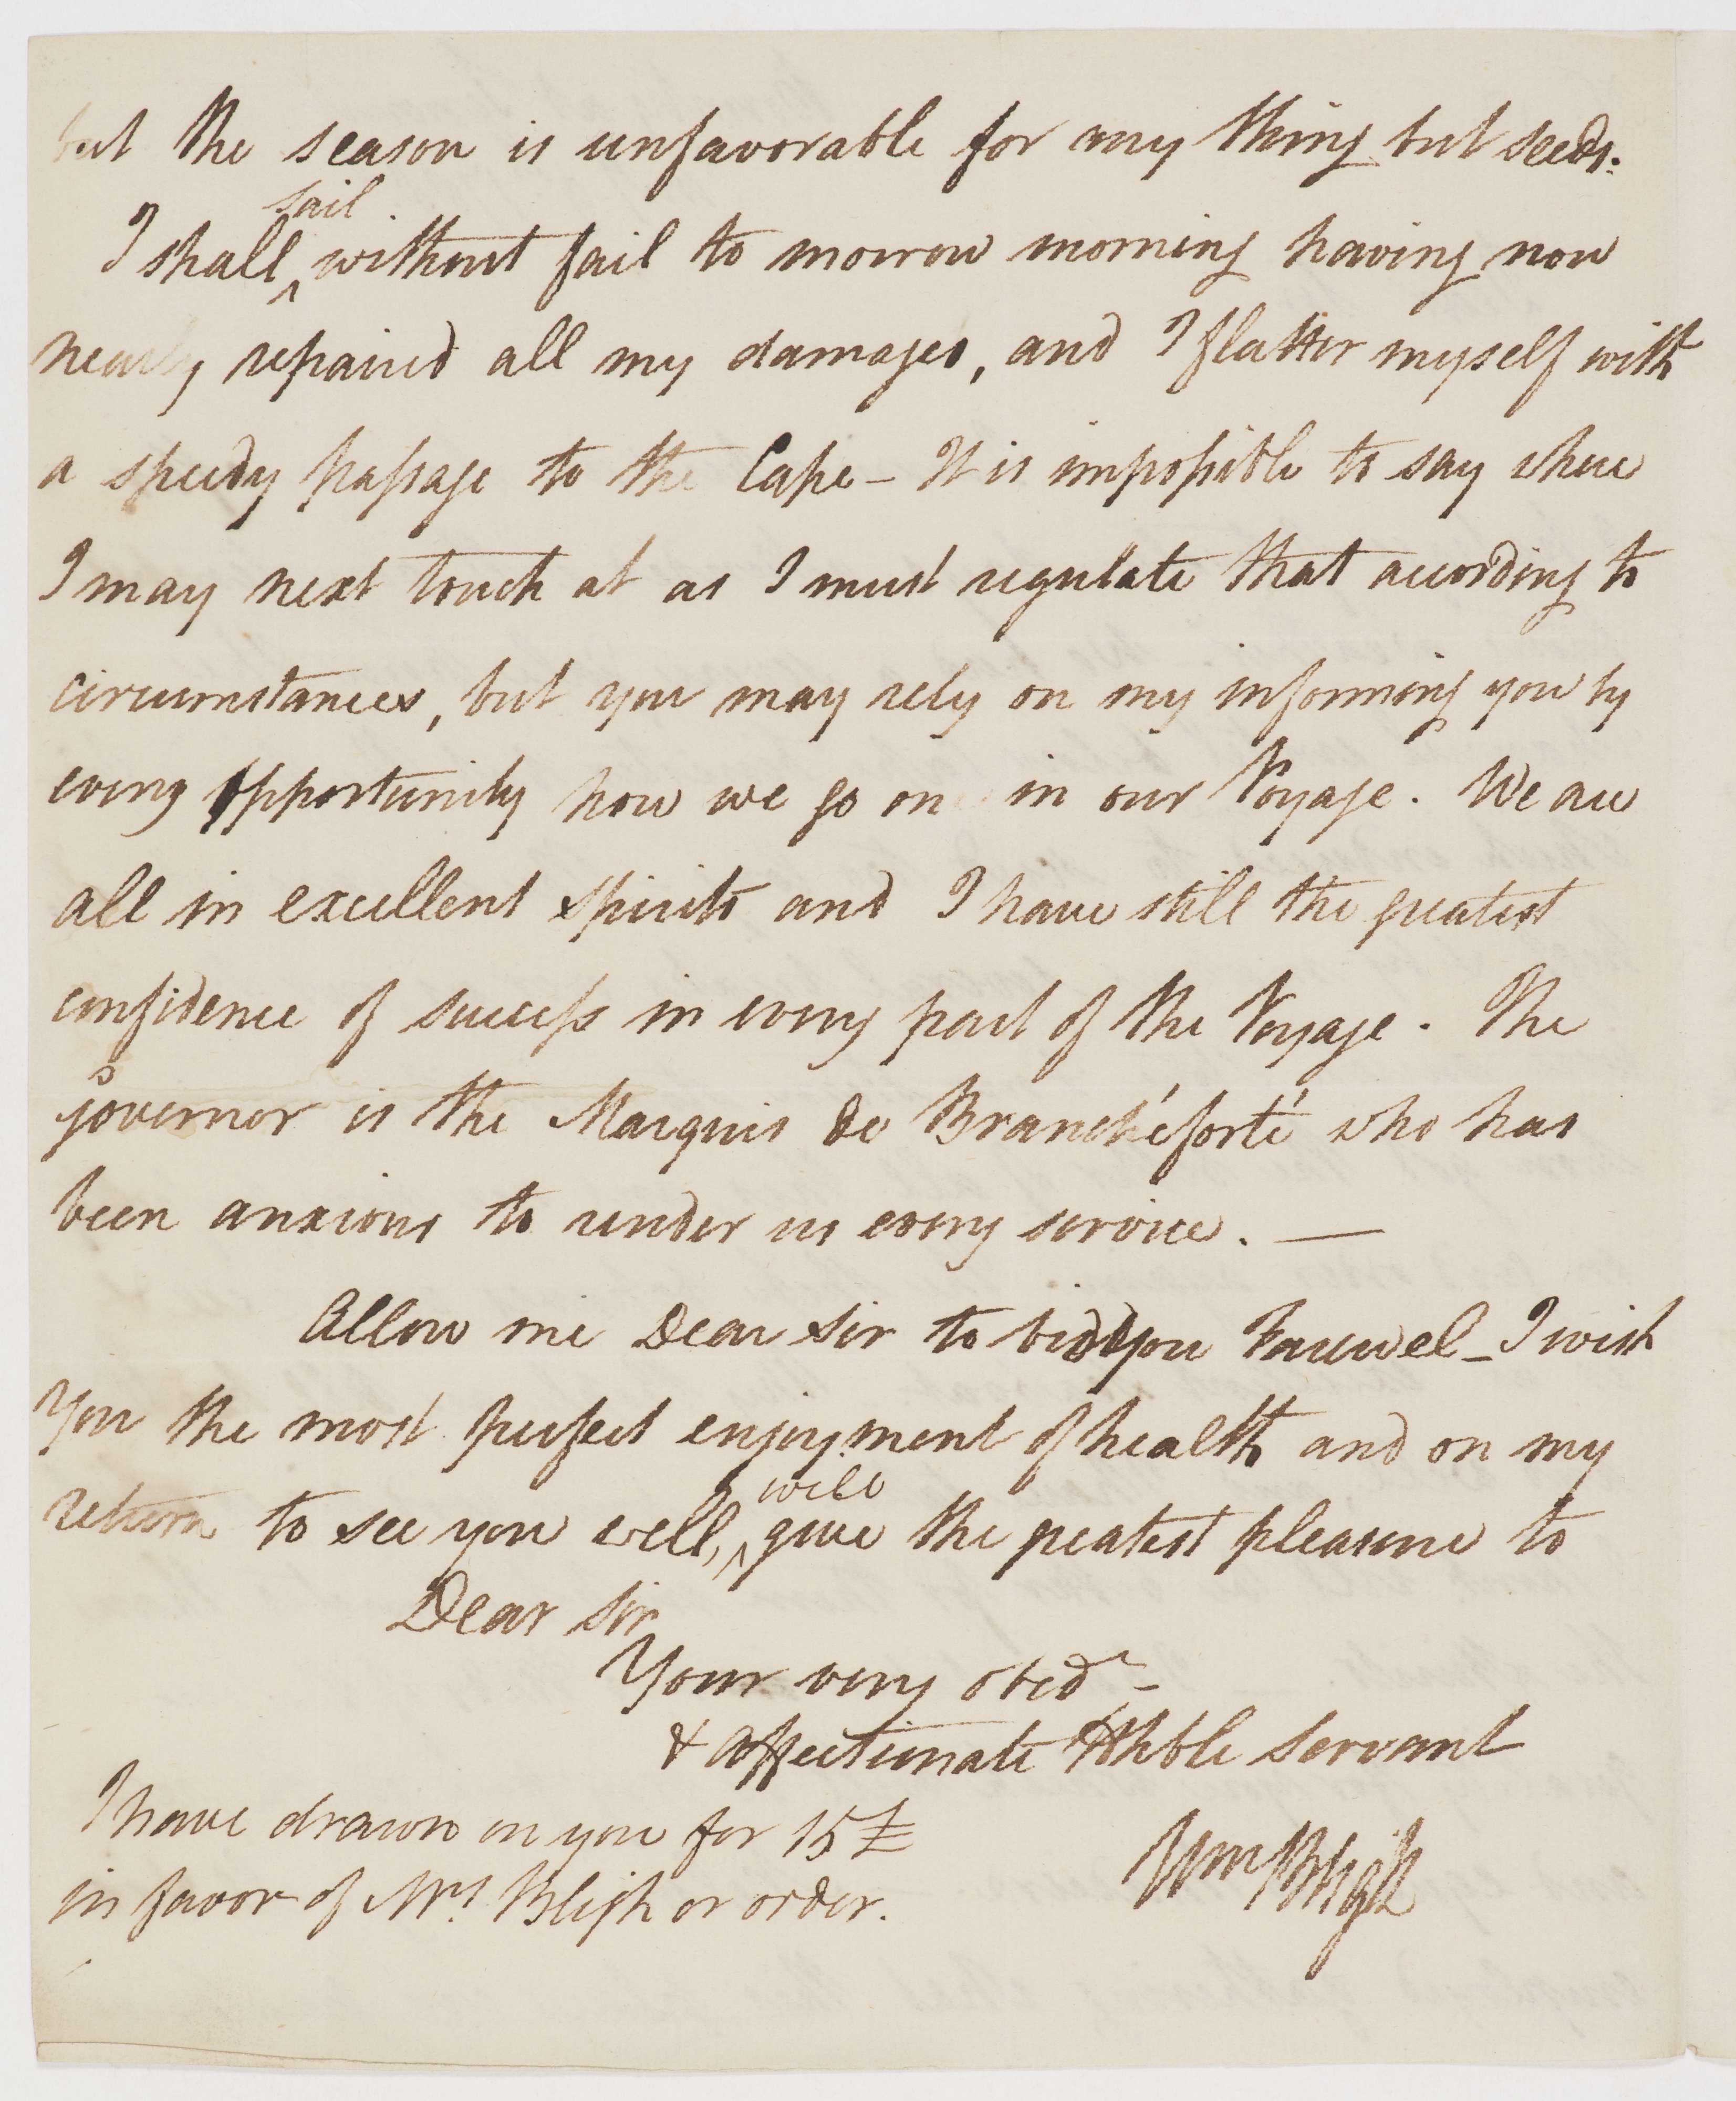 but the season is unfavorable for any thing but seeds.
I shall sail without fail to morrow morning having now
nearly repaired all my damages, and I flatter myself with
a speedy passage to the Cape – It is impossible to say where
I may next touch at as I must regulate that according to
circumstances, but you may rely on my informing you by
every opportunity how we go on in our Voyage. We are
all in excellent spirits and I have still the greatest
confidence of success in every part of the Voyage. The
governor is the Marquis de Branchéforté who has
been anxious to render us every service. —
Allow me Dear Sir to bid you Farewel – I wish
You the most perfect enjoyment of health and on my
return to see you well, will give the greatest pleasure to
Dear Sir
Your very obedt –
& affectionate Hhble Servant
Wm Bligh
I have drawn on you for 15£
in favor of Mrs. Bligh or order.